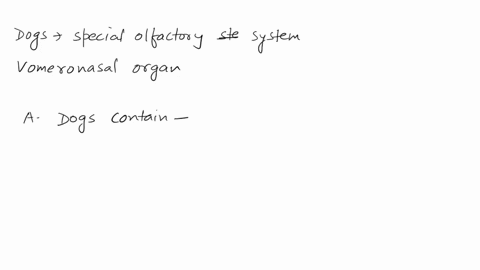 Dogs → special olfactory ste system
Vomeronasal organ
A. Dogs contain —